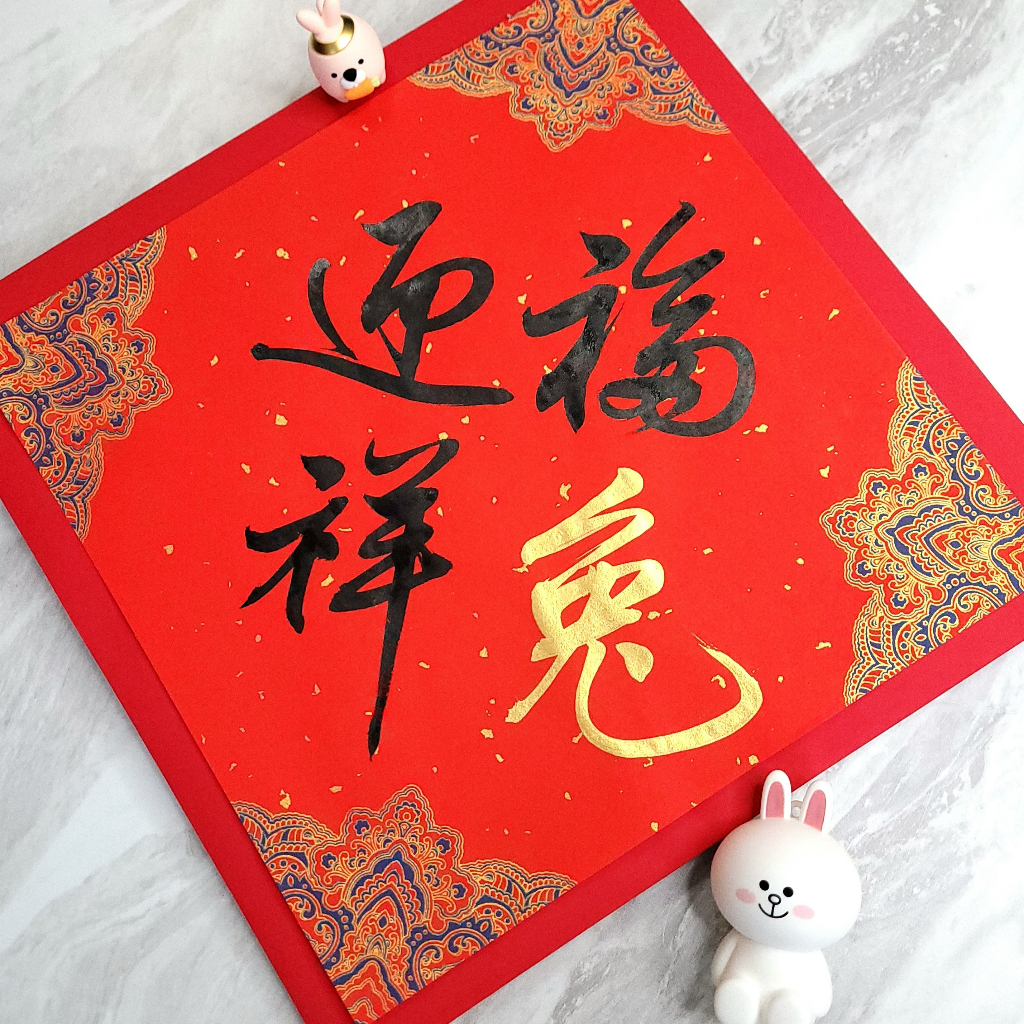 福兔
迎祥